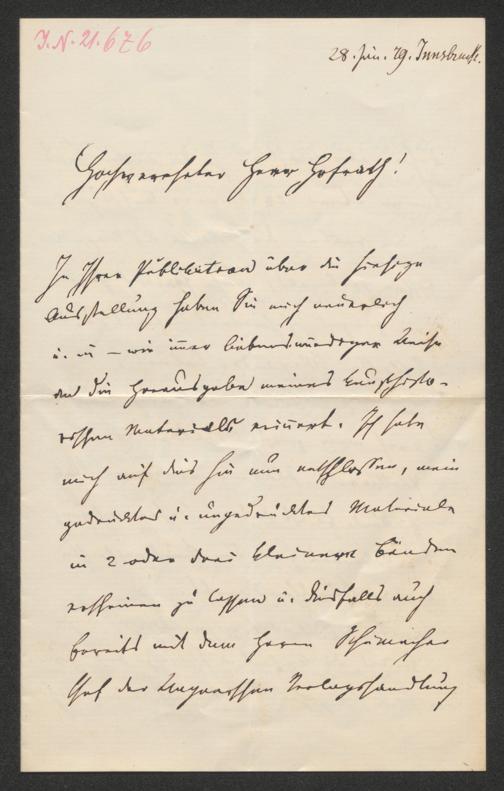 I.N. 21.676
28. Jun. 79. Innsbruck.
Hochverehrter Herr Hofrath!
In Ihrer Publikation über die hiesige
Ausstellung haben Sie mich neuerlich
u. in – wie immer liebenswürdiger Weise
an die Herausgabe meines kunsthisto-
rischen Materials erinnert. Ich habe
mich auf das hin nun entschlossen, mein
gedrucktes u. ungedrucktes Materiale
in 2 oder drei kleinere Bänden
erscheinen zu lassen u. diesfalls auch
bereits mit dem Herrn Schumacher
Chef der Wagnerschen Verlagshandlung